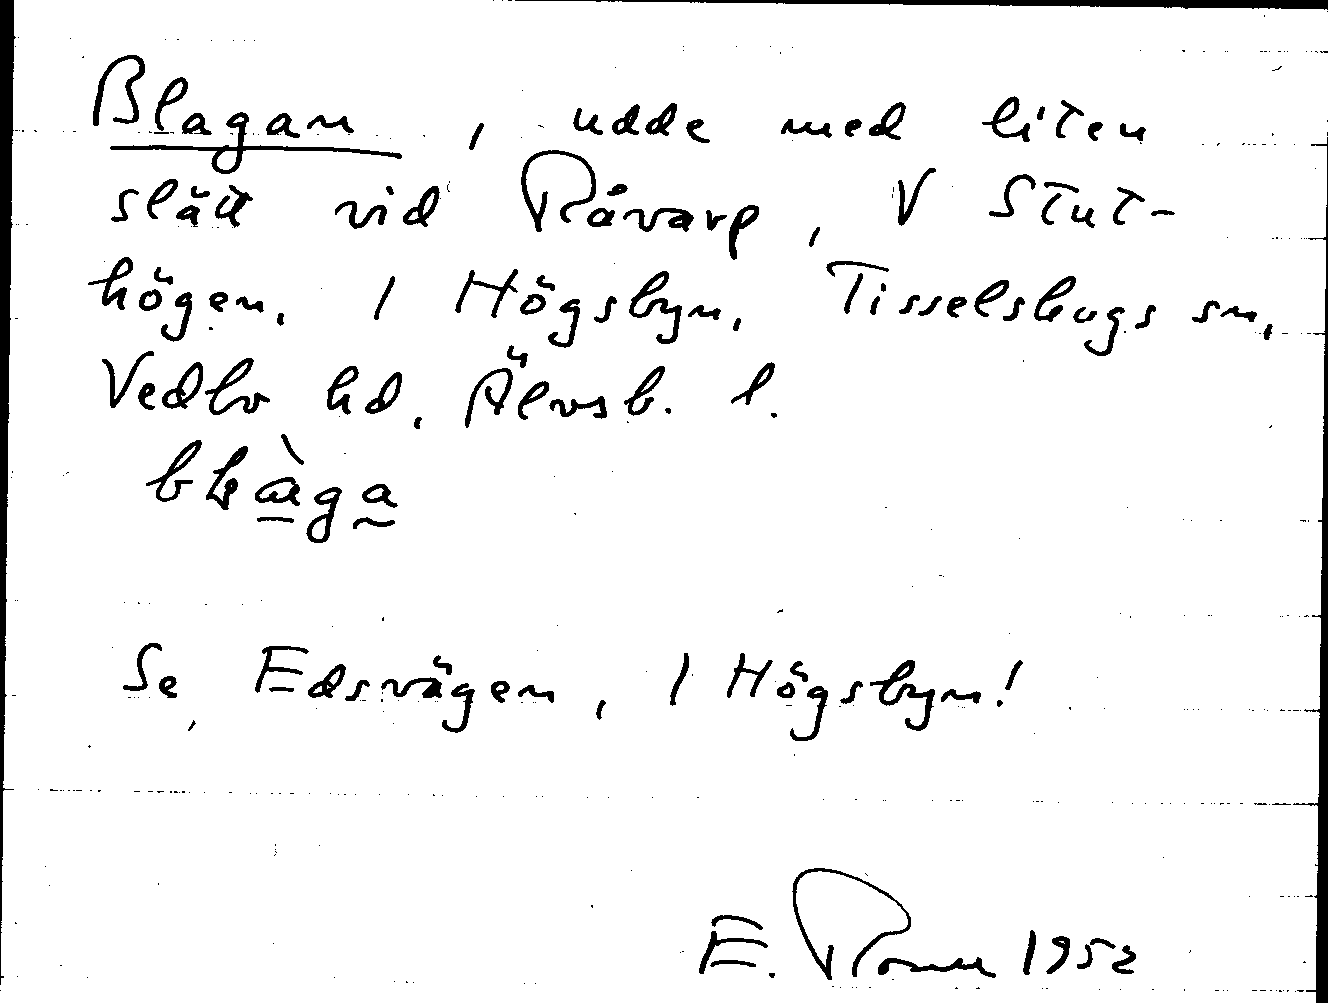 Blagan, udde med liten
slätt vid Råvarp, V Stut-
högen, 1 Högsbyn, Tisselskogs sn,
Vedbo hd, Älvsb. l.
bḷàga
Se Edsvägen, 1 Högsbyn!
E. 1952